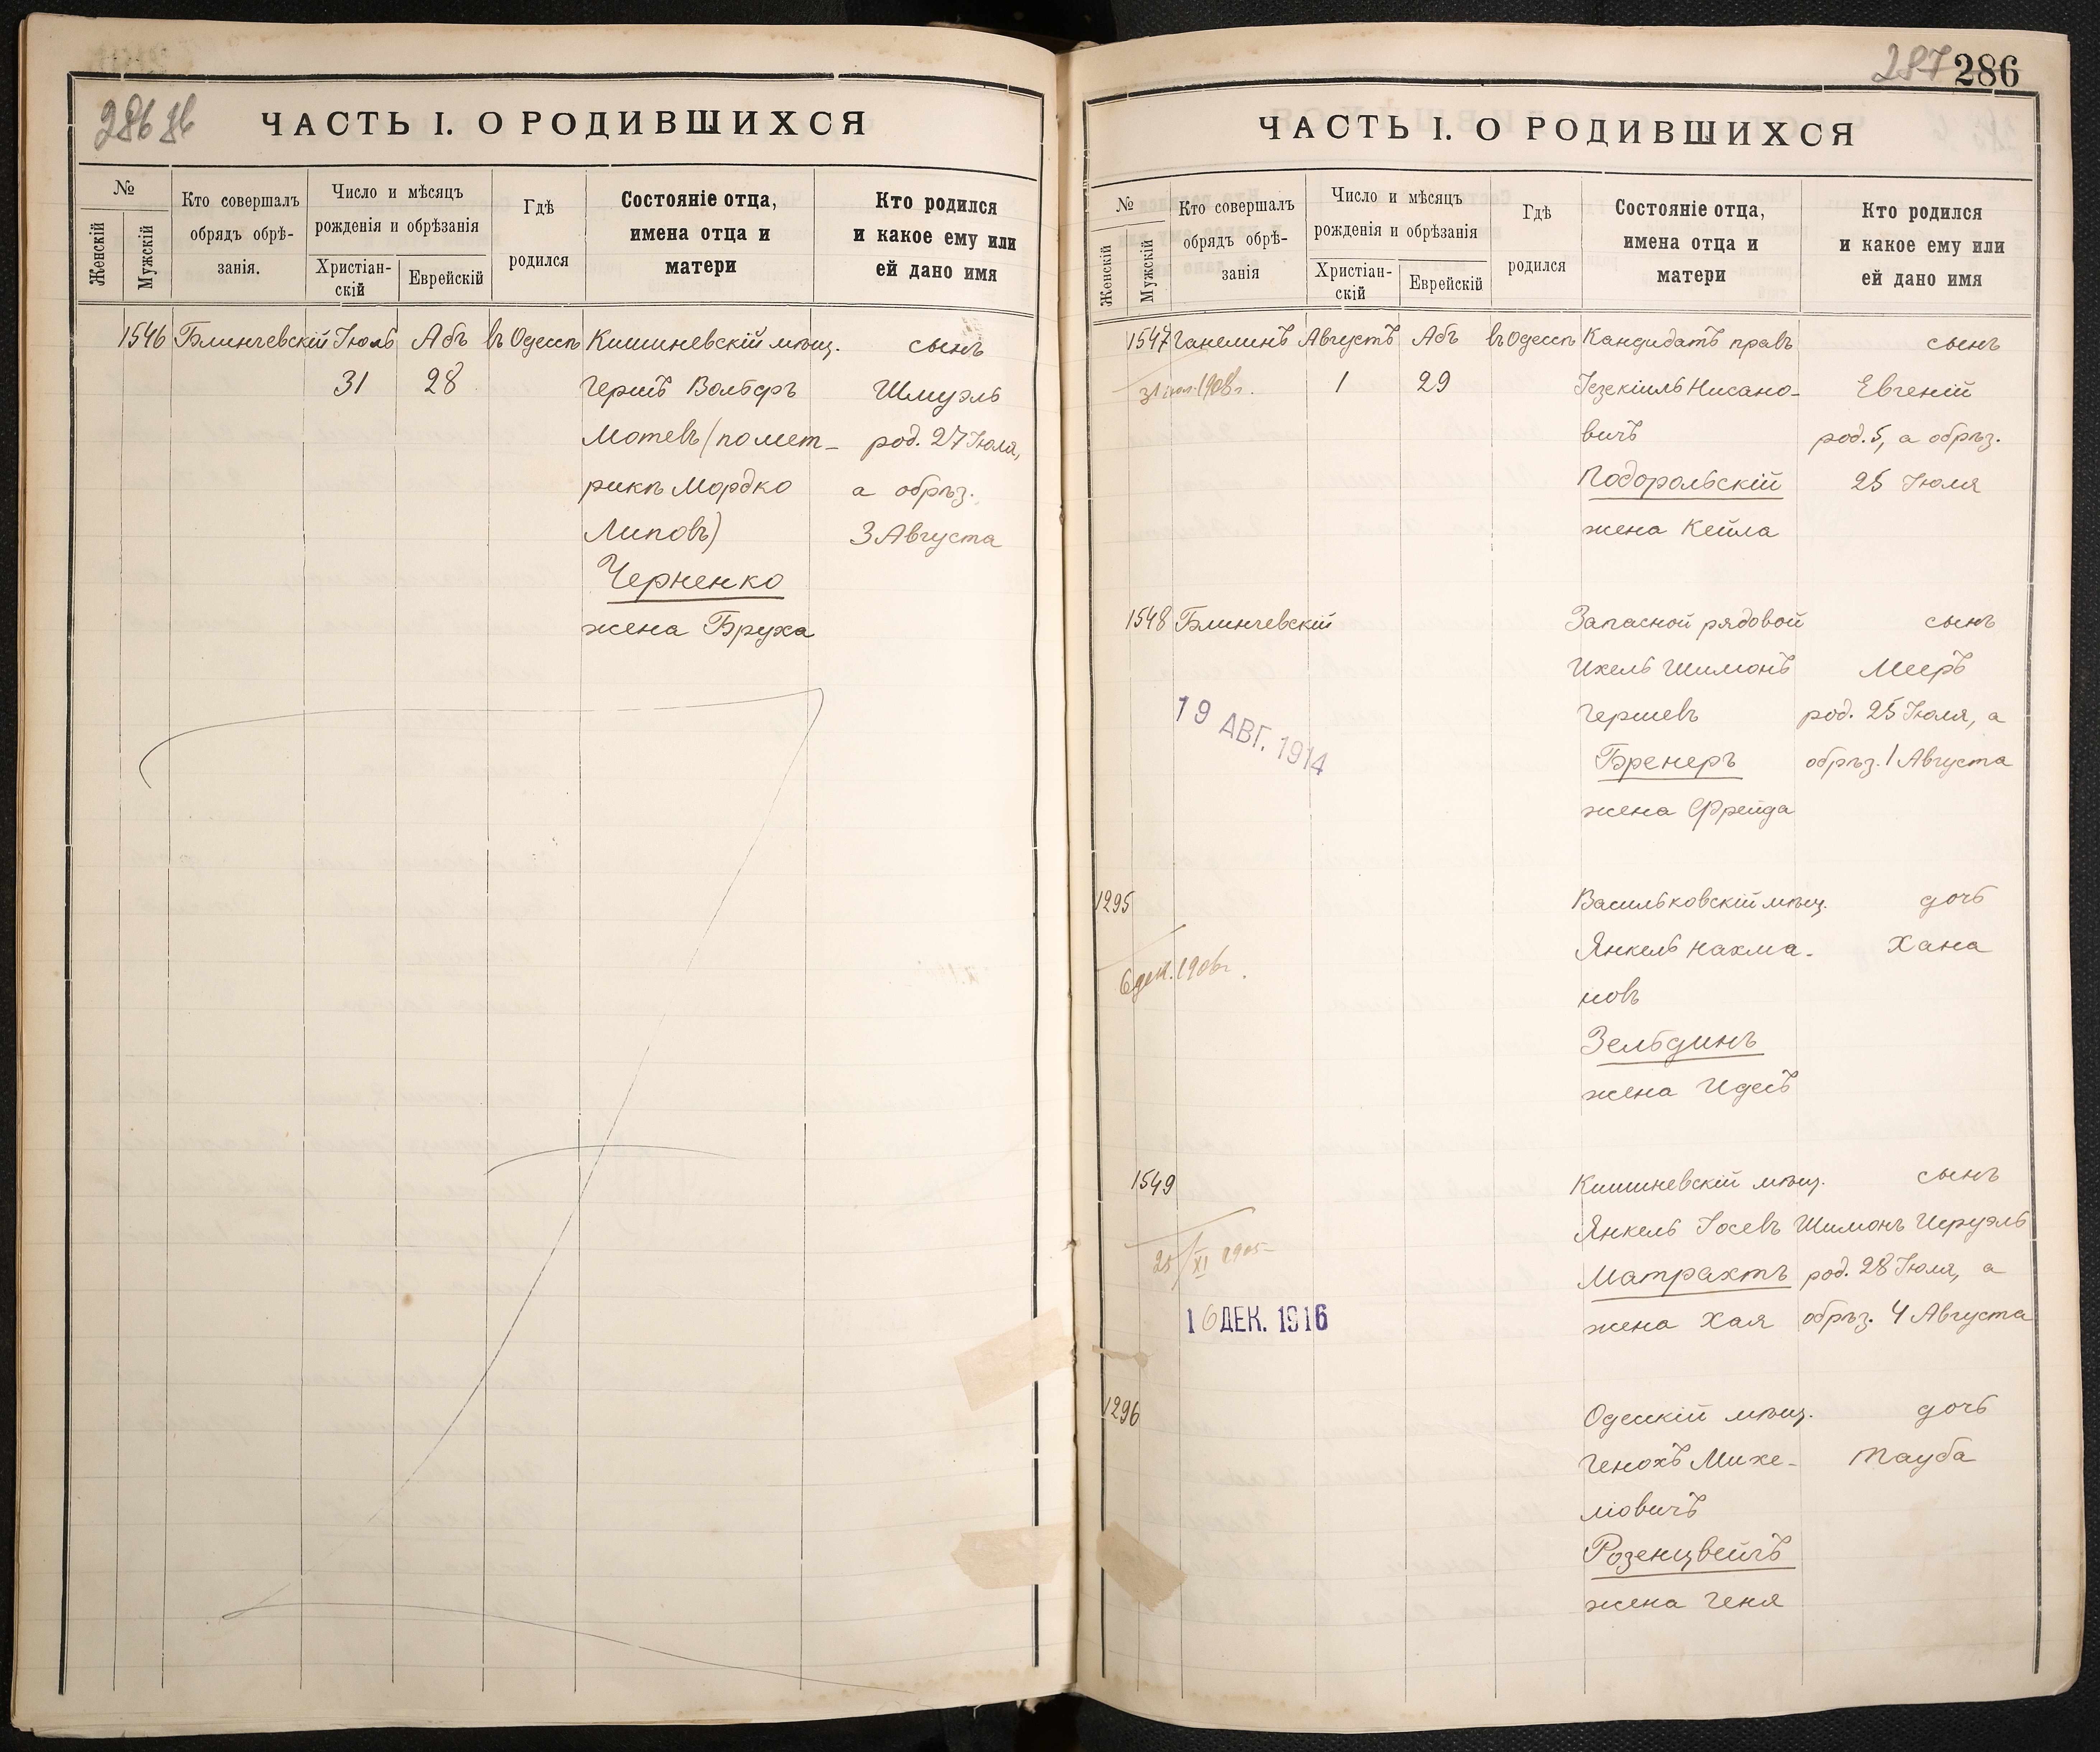 286 зв
ЧАСТЬ I. О РОДИВШИХСЯ
№
Женскій
Мужскій
Кто совершалъ
обрядъ обрѣ-
занія.
Число и мѣсяцъ
рожденія и обрѣзанія
Христіан-
скій
Еврейскій
Гдѣ
родился
Состояніе отца,
имена отца и
матери
Кто родился
и какое ему или
ей дано имя
1546 Блинчевскій Іюль Абъ въ Одессѣ Кишиневскій мѣщ. сынъ
31 28 Гершъ Вольфъ Шмуэль
Мотевъ (по мет- род. 27 Іюля,
рикѣ Мордко а обрѣз.
Липовъ) 3 Августа
Черненко
жена Бруха
287 286
ЧАСТЬ I. О РОДИВШИХСЯ
№
Женскій
Мужскій
Кто совершалъ
обрядъ обрѣ-
занія
Число и мѣсяцъ
рожденія и обрѣзанія
Христіан-
скій
Еврейскій
Гдѣ
родился
Состояніе отца,
имена отца и
матери
Кто родился
и какое ему или
ей дано имя
1547 Ганелинъ Августъ Абъ въ Одессѣ Кандидатъ правъ сынъ
31 1908 г. 1 29 Іезекіиль Нисано- Евгеній
вичъ род. 5, а обрѣз.
Подорольскій 25 Іюля
жена Кейла
1548 Блинчевскій Запасной рядовой сынъ
Ихель Шимонъ Мееръ
Гершевъ род. 25 Іюля, а
19 АВГ. 1914
Бренеръ обрѣз. 1 Августа
жена Фрейда
1295 Васильковскій мѣщ. дочь
Янкель Нахма- Хана
6 дек. 1906 г.
новъ
Зельдинъ
жена Идесъ
1549 Кишиневскій мѣщ. сынъ
Янкель Іосевъ Шимонъ Исруэль
25/XI 1905
Матрахтъ род. 28 Іюля, а
16 ДЕК. 1916
жена Хая обрѣз. 4 Августа
1296 Одесскій мѣщ. дочь
Генохъ Михе- Тауба
левичъ
Розенцвейгъ
жена Геня